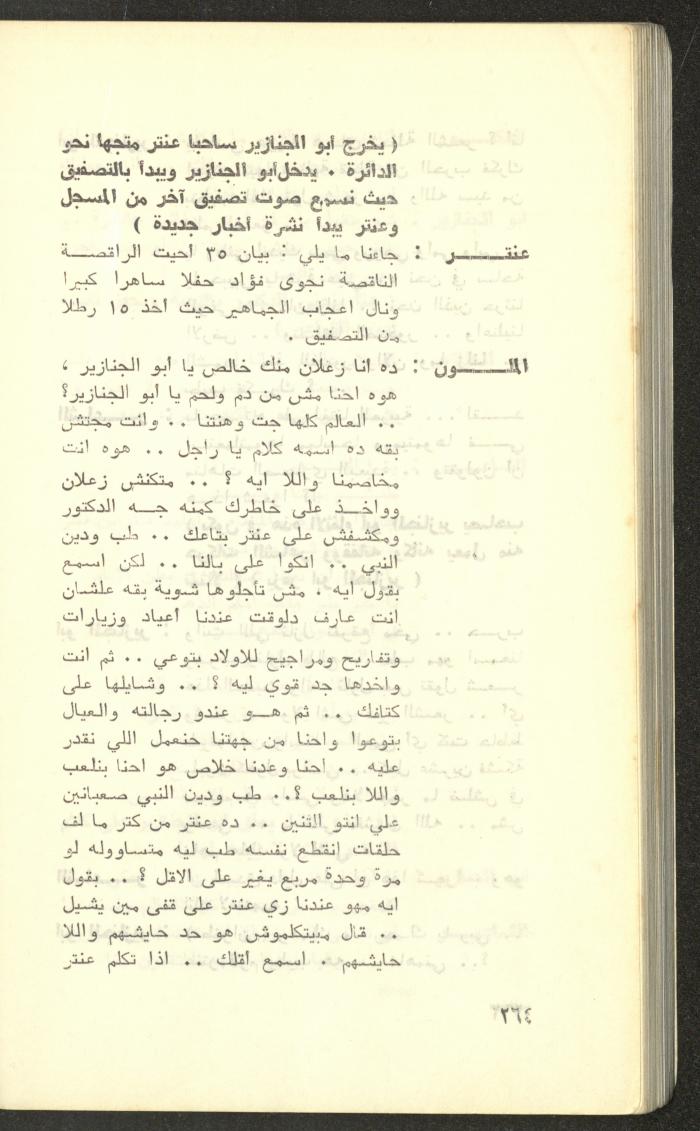 ( يخرج أبو الجنازير ساحبا عنتر متجها نحو
الدائرة . يدخل أبو الجنازير ويبدأ بالتصفيق
حيث نسمع صوت تصفيق آخر من المسجل
وعنتر يبدأ نشرة أخبار جديدة )
عنتـــــر : جاءنا ما يلي : بيان ٣٥ أحيت الراقصـــة
الناقصة نجوى فؤاد حفلا ساهرا كبيرا
ونال اعجاب الجماهير حيث أخذ ١٥ رطلا
من التصفيق .
الملـــــون : ده انا زعلان منك خالص يا أبو الجنازير ،
هوه احنا مش من دم ولحم يا أبو الجنازير؟
.. العالم كلها جت وهنتنا .. وانت مجتش
بقه ده اسمه كلام يا راجل .. هوه انت
مخاصمنا واللا ايه ؟ .. متكنش زعلان
وواخـــذ على خاطرك كمنه جـــه الدكتور
ومكشفش على عنتر بتاعك .. طب ودين
النبي .. انكوا على بالنا .. لكن اسمع
بقول أيه . مش تأجلوها شوية بقه علشان
انت عارف دلوقت عندنا أعياد وزيارات
وتفاريح ومراجيح للاولاد بتوعي .. ثم انت
واخدها جد قوي ليه ؟ .. وشايلها على
كتافك .. ثم هـــو عندو رجالته والعيال
بتوعوا واحنا من جهتنا حنعمل اللي نقدر
عليه .. احنا وعدنا خلاص هو احنا بنلعب
واللا بنلعب ؟.. طب ودين النبي صعبانين
علي انتو التنين .. ده عنتر من كتر ما لف
حلقات إنقطع نفسه طب ليه متساووله لو
مرة وحدة مربع يغير على الاقل ؟ .. بقول
ايه مهو عندنا زي عنتر على قفى مين يشيل
.. قال مبيتكلموش هو حد حايشهم واللا
حايشهم . اسمع أقلك .. اذا تكلم عنتر
٢٦٤